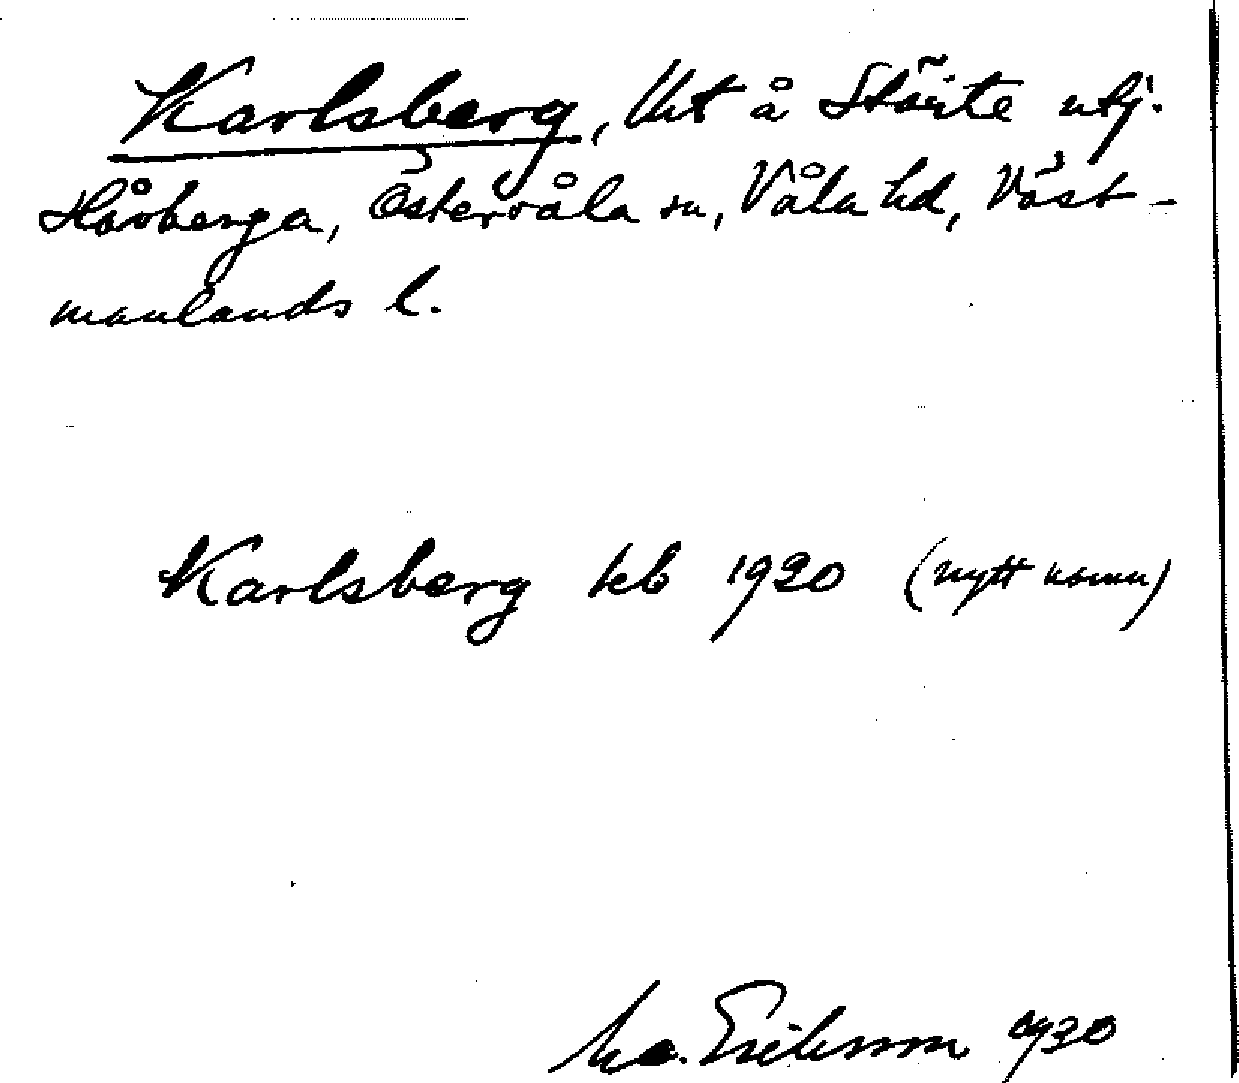 Karlsberg, lht å Störte utj.
Håvberga, Östervåla sn, Våla hd, Väst-
manlands l.
Karlsberg kb 1920 (nytt namn)
Eriksson 1930